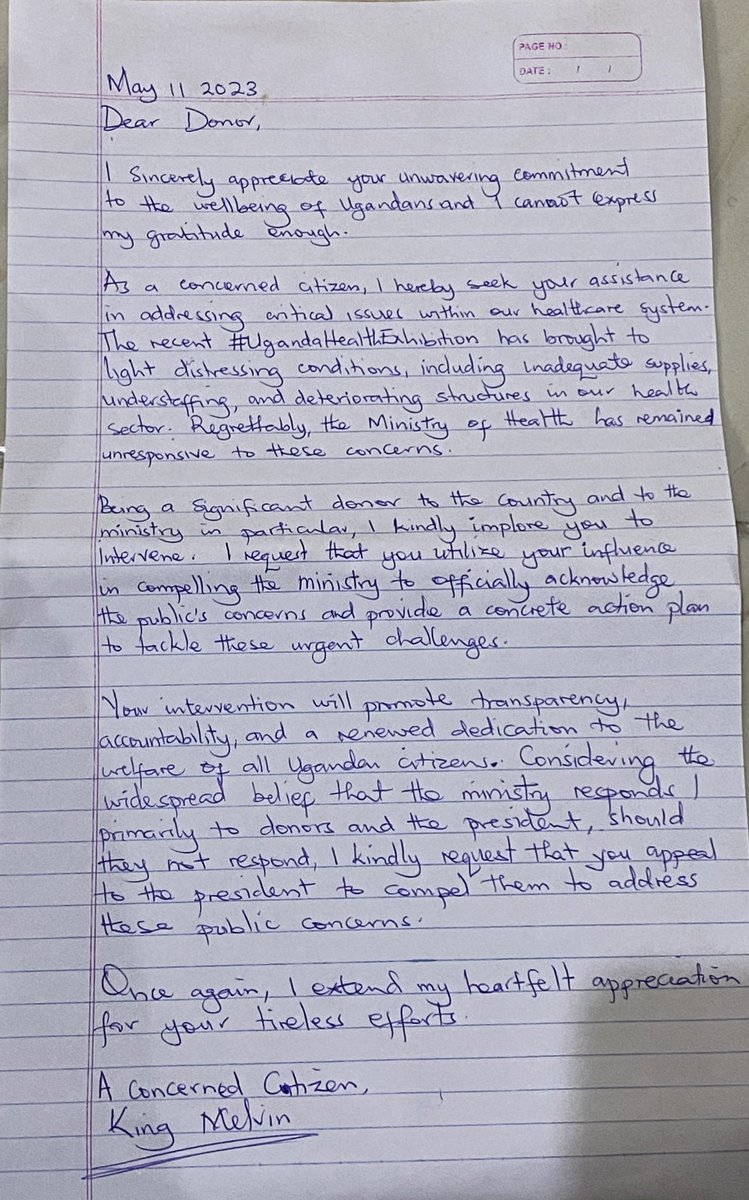 PAGE NO.:
DATE: / /
May 11 2023
Dear Donor,
I Sincerely appreciate your unwavering commitment
to the wellbeing of Ugandans and I cannot express
my gratitude enough.
As a concerned citizen, I hereby seek your assistance
in addressing critical issues within our healthcare system.
The recent #UgandaHealthExhibition has brought to
light distressing conditions, including inadequate supplies,
understaffing, and deteriorating structures in our health
sector. Regrettably, the Ministry of Health has remained
unresponsive to these concerns.
Being a significant donor to the country and to the
ministry in particular, I kindly implore you to
intervene. I request that you utilize your influence
in compelling the ministry to officially acknowledge
the public's concerns and provide a concrete action plan
to tackle these urgent challenges.
Your intervention will promote transparency,
accountability, and a renewed dedication to the
welfare of all Ugandan citizens. Considering the
widespread belief that the ministry responds
primarily to donors and the president, should
they not respond, I kindly request that you appeal
to the president to compel them to address
these public concerns.
Once again, I extend my heartfelt appreciation
for your tireless efforts.
A Concerned Citizen,
King Melvin